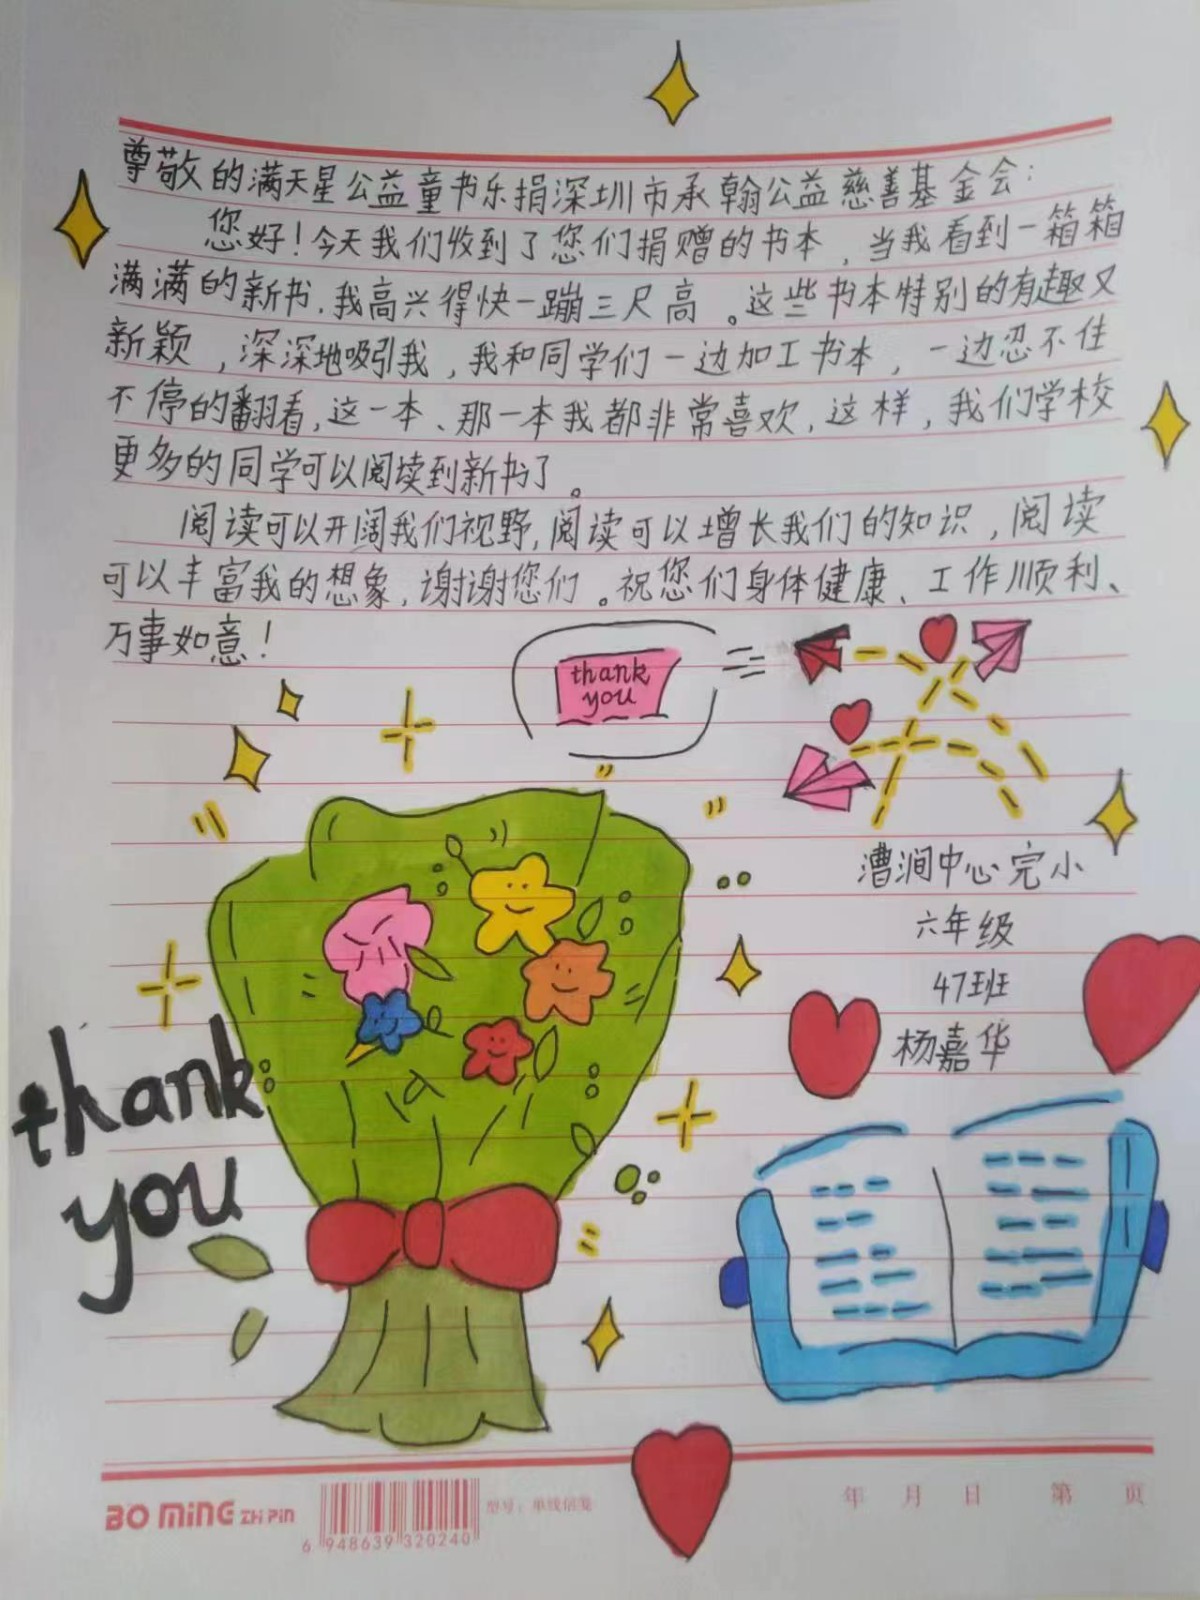 尊敬的满天星公益童书乐捐深圳市承翰公益慈善基金会：
您好！今天我们收到了您们捐赠的书本，当我看到一箱箱
满满的新书，我高兴得快一蹦三尺高。这些书本特别的有趣又
新颖，深深地吸引我，我和同学们一边加工书本，一边忍不住
不停的翻看，这一本、那一本我都非常喜欢，这样，我们学校
更多的同学可以阅读到新书了。
阅读可以开阔我们视野，阅读可以增长我们的知识，阅读
可以丰富我的想象，谢谢您们。祝您们身体健康、工作顺利、
万事如意！
thank
you
漕涧中心完小
六年级
47班
杨嘉华
thank
you
BO MING ZHI PIN
型号：单线信笺
6 948639 320240
年 月 日 第 页